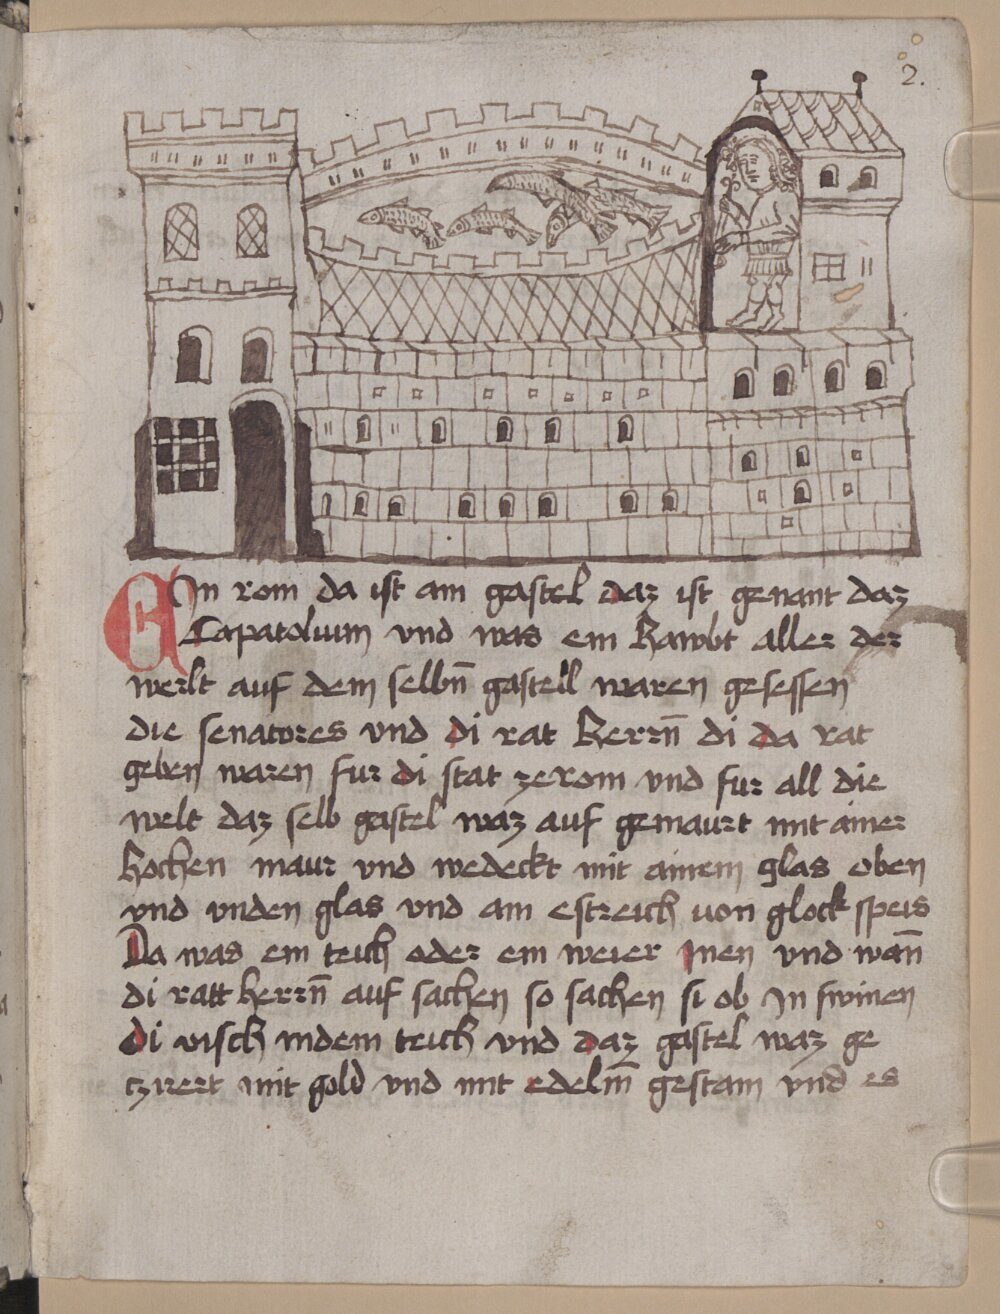 2.
In rom da ist am gastel daz ist genant daz
Capatolium vnd was ein hawbt aller der
werlt auf dem selbn̄ gastell waren gesessen
die senatores vnd di rat herrn̄ di da rat
geben waren fur di stat ze rom vnd fur all die
welt daz selb gastel waz auf gemaurt mit ainer
hochen maur vnd wedeckt mit ainem glas oben
vnd vnden glas vnd am estreich uon glock speis
Da was ein teich oder ein weier jnen vnd wan̄
di ratt herrn̄ auf sachen so sachen si ob In swinen
di visch in dem teich vnd daz gastel waz ge
tzirert mit gold vnd mit edelm̄ gestain vnd es